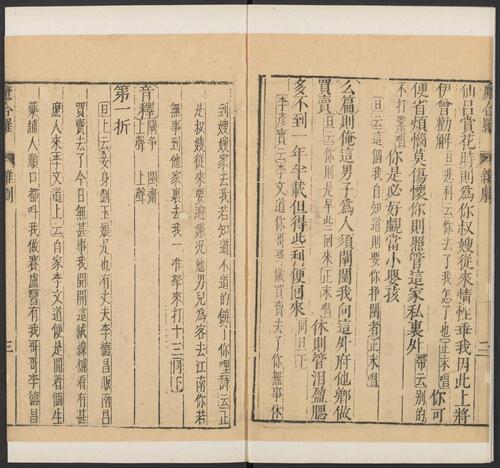 仙呂賞花時則為你叔嫂從來情性乖我因此上將
伊曾勸解旦悲科云你去了我怎了也正末唱你可
便省煩惱莫傷懷你則照管這家私裏外帶云別的
不打緊唱你是必好覷當小嬰孩
旦云這個我自知道則要你掙闥者正末唱
么篇則俺這男子為人須闡闥我向這外府他鄉做
買賣旦云你則是早些兒回來正末唱休則管泪盈腮
多不到一年半載但得些利便回來同旦下
李彥實云你哥哥做買賣去了你無事休
到嫂嫂家去我若知道不道的饒了你哩詩云正
是叔嫂從來要避嫌况他男兒為客去江南你若
無事到他家裏去我一准拏來打十三同下
音釋
第一折
旦上云妾身劉玉娘是也有丈夫李德昌販南昌
買賣去了今日無甚事我開開這絨線舖看有甚
麼人來李文道上云自家李文道便是開着個生
藥舖人順口都叫我做賽盧醫有我哥哥李德昌
魔合羅
雜劇
二
魔合羅
雜劇
三